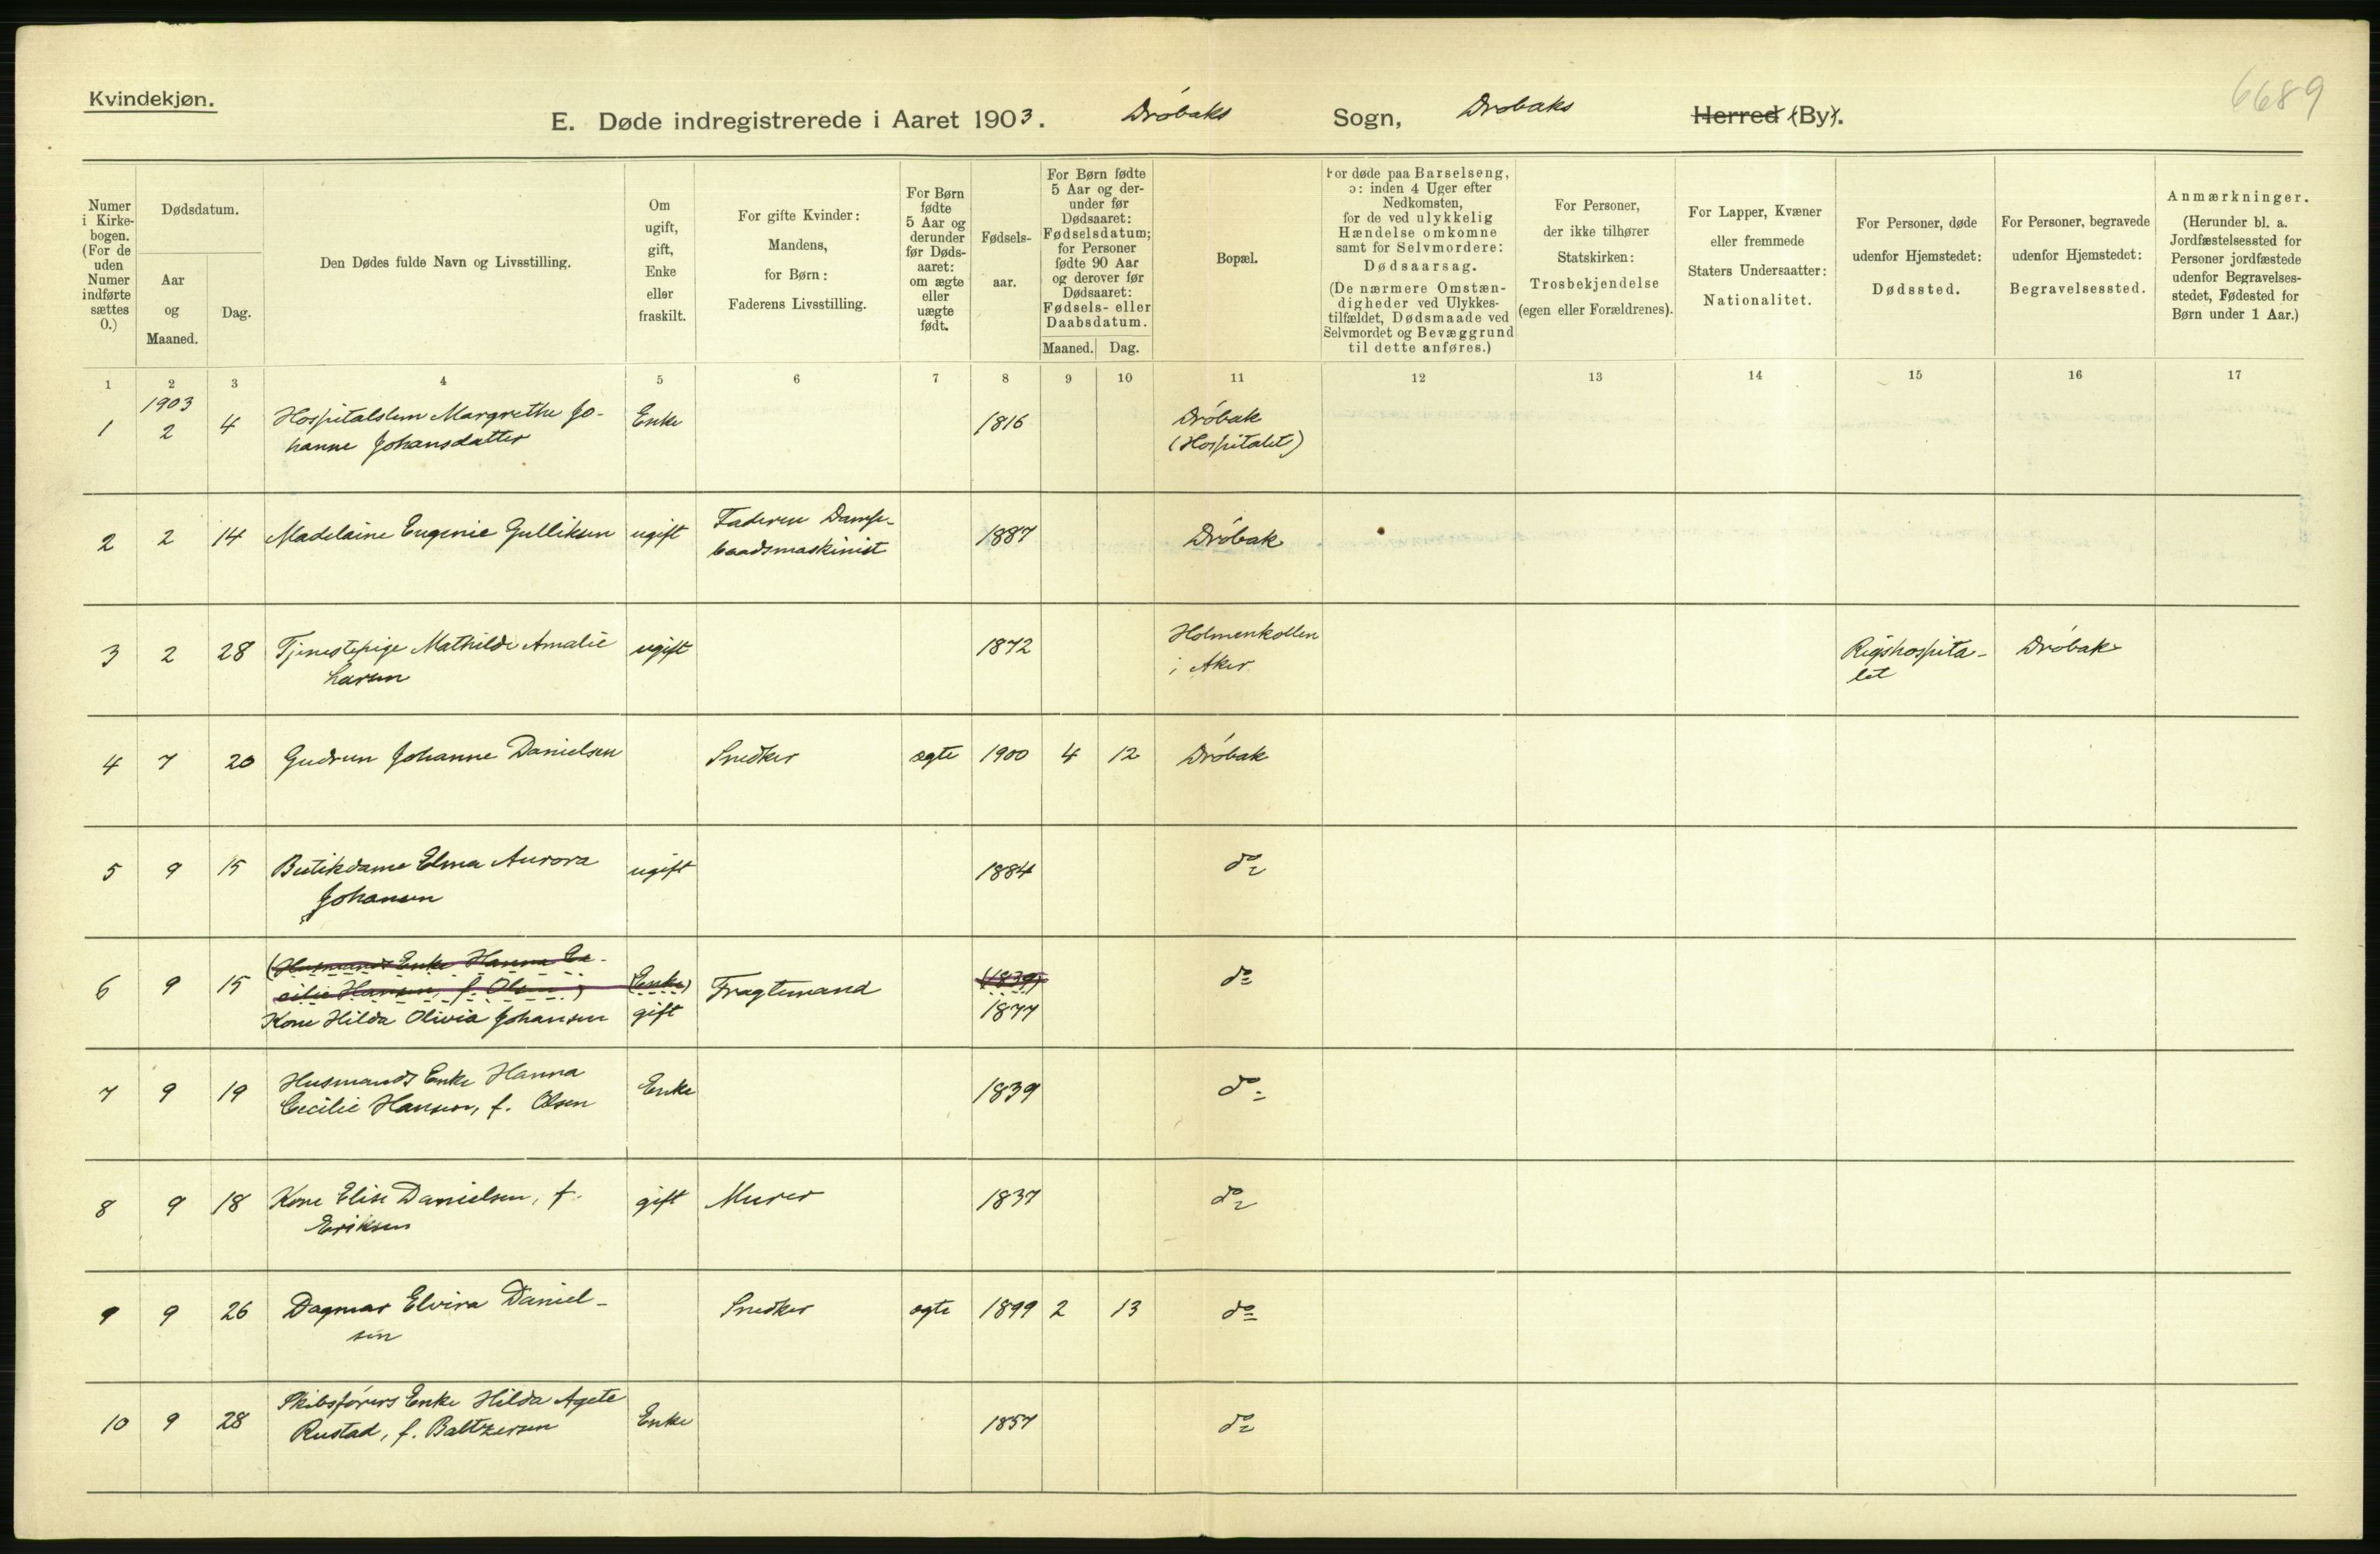 6689
Kvindekjøn.
E. Døde indregistrerede i Aaret 1903. Drøbaks Sogn, Drøbaks Herred (By).
Numer
i Kirke-
bogen.
(For de
uden
Numer
indførte
sættes
0.)
Dødsdatum.
Aar
og
Maaned.
Dag.
Den Dødes fulde Navn og Livsstilling.
Om
ugift,
gift,
Enke
eller
fraskilt.
For gifte Kvinder:
Mandens,
for Børn:
Faderens Livsstilling.
For Børn
fødte
5 Aar og
derunder
før Døds-
aaret:
om ægte
eller
uægte
født.
Fødsels-
aar.
For Børn fødte
5 Aar og der-
under før
Dødsaaret:
Fødselsdatum;
for Personer
fødte 90 Aar
og derover før
Dødsaaret:
Fødsels- eller
Daabsdatum.
Maaned. Dag.
Bopæl.
For døde paa Barselseng,
ɔ: inden 4 Uger efter
Nedkomsten,
for de ved ulykkelig
Hændelse omkomne
samt for Selvmordere:
Dødsaarsag.
(De nærmere Omstæn-
digheder ved Ulykkes-
tilfældet, Dødsmaade ved
Selvmordet og Bevæggrund
til dette anføres.)
For Personer,
der ikke tilhører
Statskirken:
Trosbekjendelse
(egen eller Forældrenes).
For Lapper, Kvæner
eller fremmede
Staters Undersaatter:
Nationalitet.
For Personer, døde
udenfor Hjemstedet:
Dødssted.
For Personer, begravede
udenfor Hjemstedet:
Begravelsessted.
Anmærkninger.
(Herunder bl. a.
Jordfæstelsessted for
Personer jordfæstede
udenfor Begravelses-
stedet, Fødested for
Børn under 1 Aar.)
1 2 3 4 5 6 7 8 9 10 11 12 13 14 15 16 17
1903
1 2 4 Hospitalslem Margrethe Jo- Enke 1816 Drøbak
hanne Johansdatter (Hospitalet)
2 2 14 Madelaine Eugenie Gulliksen ugift Faderen Damp- 1887 Drøbak
baadsmaskinist
3 2 28 Tjenestepige Mathilde Amalie ugift 1872 Holmenkollen Rigshospita- Drøbak
Larsen i Aker let
4 7 20 Gudrun Johanne Danielsen Snedker ægte 1900 4 12 Drøbak
5 9 15 Butikdame Elma Aurora ugift 1884 do
Johansen
6 9 15 (Husmands Enke Hanna Ce- (Enke) Fragtemand (1839) do
cilie Hansen, f. Olsen)
Kone Hilda Olivia Johansen gift 1877
7 9 19 Husmands Enke Hanna Enke 1839 do
Cecilie Hansen, f. Olsen
8 9 18 Kone Elise Danielsen, f. gift Murer 1837 do
Eriksen
9 9 26 Dagmar Elvira Daniel- Snedker ægte 1899 2 13 do
sen
10 9 28 Skibsførers Enke Hilda Agete Enke 1857 do
Rustad, f. Baltzersen